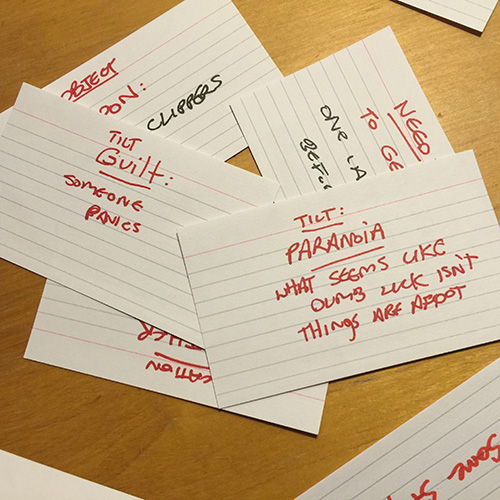 OBJECT
CLIPPERS
TILT
GUILT:
SOMEONE
PANICS
NEED
TO GE
ONE LA
BEFO
TILT:
PARANOIA
WHAT SEEMS LIKE
DUMB LUCK ISN'T
THINGS ARE ABOOT
CATION
SOME